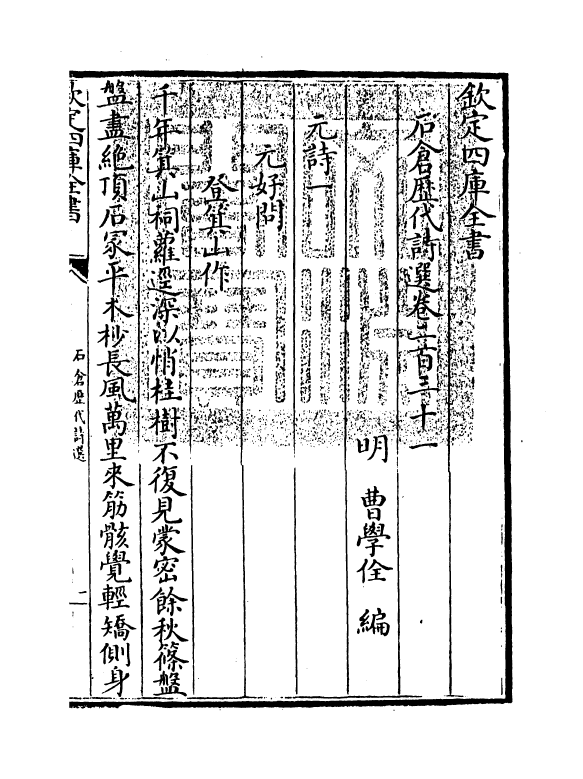 欽定四庫全書
石倉歴代詩選卷二百三十一
明 曹學佺 編
元詩一
元好問
登箕山作
千年箕山祠蘿逕深以悄桂樹不復見蒙密餘秋篠盤
盤盡絶頂石冢平木杪長風萬里來筋骸覺輕矯側身
欽定四庫全書
石倉歴代詩選